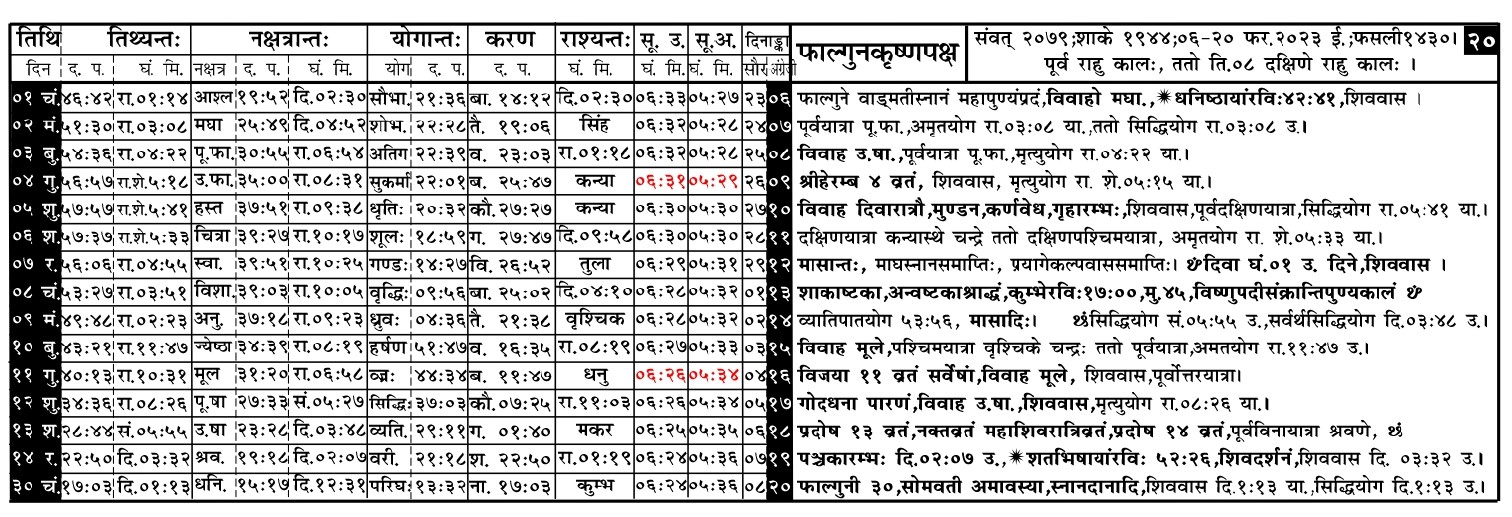 तिथि तिथ्यन्तः नक्षत्रान्तः योगान्तः करण राश्यन्तः सू. उ. सू.अ. दिनाङ्का फाल्गुनकृष्णपक्ष संवत् २०७९;शाके १९४४;०६-२० फर.२०२३ ई.;फसली१४३०। २०
दिन द. प. घं. मि. नक्षत्र द. प. घं. मि. योग द. प. द. प. घं. मि. घं. मि. घं. मि. सौर अंग्रेजी पूर्व राहु कालः, ततो ति.०८ दक्षिणे राहु कालः ।
०१ चं. ४६:४२ रा.०१:१४ आश्ल १९:५२ दि.०२:३० सौभा. २१:३६ बा. १४:१२ दि.०२:३० ०६:३३ ०५:२७ २३ ०६ फाल्गुने वाड्मतीस्नानं महापुण्यंप्रदं,विवाहो मघा.,✷धनिष्ठायांरविः४२:४१,शिववास ।
०२ मं. ५१:३० रा.०३:०८ मघा २५:४९ दि.०४:५२ शोभ. २२:२८ तै. १९:०६ सिंह ०६:३२ ०५:२८ २४ ०७ पूर्वयात्रा पू.फा.,अमृतयोग रा.०३:०८ या.,ततो सिद्धियोग रा.०३:०८ उ.।
०३ बु. ५४:३६ रा.०४:२२ पू.फा. ३०:५५ रा.०६:५४ अतिग २२:३९ व. २३:०३ रा.०१:१८ ०६:३२ ०५:२८ २५ ०८ विवाह उ.षा.,पूर्वयात्रा पू.फा.,मृत्युयोग रा.०४:२२ या.।
०४ गु. ५६:५७ रा.शे.५:१८ उ.फा. ३५:०० रा.०८:३१ सुकर्मा २२:०१ ब. २५:४७ कन्या ०६:३१ ०५:२९ २६ ०९ श्रीहेरम्ब ४ व्रतं, शिववास, मृत्युयोग रा. शे.०५:१५ या.।
०५ शु. ५७:५७ रा.शे.५:४१ हस्त ३७:५१ रा.०९:३८ धृतिः २०:३२ कौ. २७:२७ कन्या ०६:३० ०५:३० २७ १० विवाह दिवारात्रौ,मुण्डन,कर्णवेध,गृहारम्भः,शिववास,पूर्वदक्षिणयात्रा,सिद्धियोग रा.०५:४१ या.।
०६ श. ५७:३७ रा.शे.५:३३ चित्रा ३९:२७ रा.१०:१७ शूलः १८:५९ ग. २७:४७ दि.०९:५८ ०६:३० ०५:३० २८ ११ दक्षिणयात्रा कन्यास्थे चन्द्रे ततो दक्षिणपश्चिमयात्रा, अमृतयोग रा. शे.०५:३३ या.।
०७ र. ५६:०६ रा.०४:५५ स्वा. ३९:५१ रा.१०:२५ गण्डः १४:२७ वि. २६:५२ तुला ०६:२९ ०५:३१ २९ १२ मासान्तः, माघस्नानसमाप्तिः, प्रयागेकल्पवाससमाप्तिः। दिवा घं.०१ उ. दिने,शिववास ।
०८ चं. ५३:२७ रा.०३:५१ विशा. ३९:०३ रा.१०:०५ वृद्धिः ०९:५६ बा. २५:०२ दि.०४:१० ०६:२८ ०५:३२ ०१ १३ शाकाष्टका,अन्वष्टकाश्राद्धं,कुम्भेरविः१७:००,मु.४५,विष्णुपदीसंक्रान्तिपुण्यकालं
०९ मं. ४९:४८ रा.०२:२३ अनु. ३७:१८ रा.०९:२३ ध्रुवः ०४:३६ तै. २१:३८ वृश्चिक ०६:२८ ०५:३२ ०२ १४ व्यातिपातयोग ५३:५६, मासादिः। सिद्धियोग सं.०५:५५ उ.,सर्वर्थसिद्धियोग दि.०३:४८ उ.।
१० बु. ४३:२१ रा.११:४७ ज्येष्ठा ३४:३९ रा.०८:१९ हर्षण ५१:४७ व. १६:३५ रा.०८:१९ ०६:२७ ०५:३३ ०३ १५ विवाह मूले,पश्चिमयात्रा वृश्चिके चन्द्रः ततो पूर्वयात्रा,अमतयोग रा.११:४७ उ.।
११ गु. ४०:१३ रा.१०:३१ मूल ३१:२० रा.०६:५८ व्ज्रः ४४:३४ ब. ११:४७ धनु ०६:२६ ०५:३४ ०४ १६ विजया ११ व्रतं सर्वेषां,विवाह मूले, शिववास,पूर्वोत्तरयात्रा।
१२ शु. ३४:३६ रा.०८:२६ पू.षा २७:३३ सं.०५:२७ सिद्धिः ३७:०३ कौ. ०७:२५ रा.११:०३ ०६:२६ ०५:३४ ०५ १७ गोदधना पारणं,विवाह उ.षा.,शिववास,मृत्युयोग रा.०८:२६ या.।
१३ श. २८:४४ सं.०५:५५ उ.षा २३:२८ दि.०३:४८ व्यति. २९:११ ग. ०१:४० मकर ०६:२५ ०५:३५ ०६ १८ प्रदोष १३ व्रतं,नक्तव्रतं महाशिवरात्रिव्रतं,प्रदोष १४ व्रतं,पूर्वविनायात्रा श्रवणे,
१४ र. २२:५० दि.०३:३२ श्रव. १९:१८ दि.०२:०७ वरी. २१:१८ श. २२:५० रा.०१:१९ ०६:२४ ०५:३६ ०७ १९ पञ्चकारम्भः दि.०२:०७ उ.,✷शतभिषायांरविः ५२:२६,शिवदर्शनं,शिववास दि. ०३:३२ उ.।
३० चं. १७:०३ दि.०१:१३ धनि. १५:१७ दि.१२:३१ परिघः १३:३२ ना. १७:०३ कुम्भ ०६:२४ ०५:३६ ०८ २० फाल्गुनी ३०,सोमवती अमावस्या,स्नानदानादि,शिववास दि.१:१३ या.,सिद्धियोग दि.१:१३ उ.।